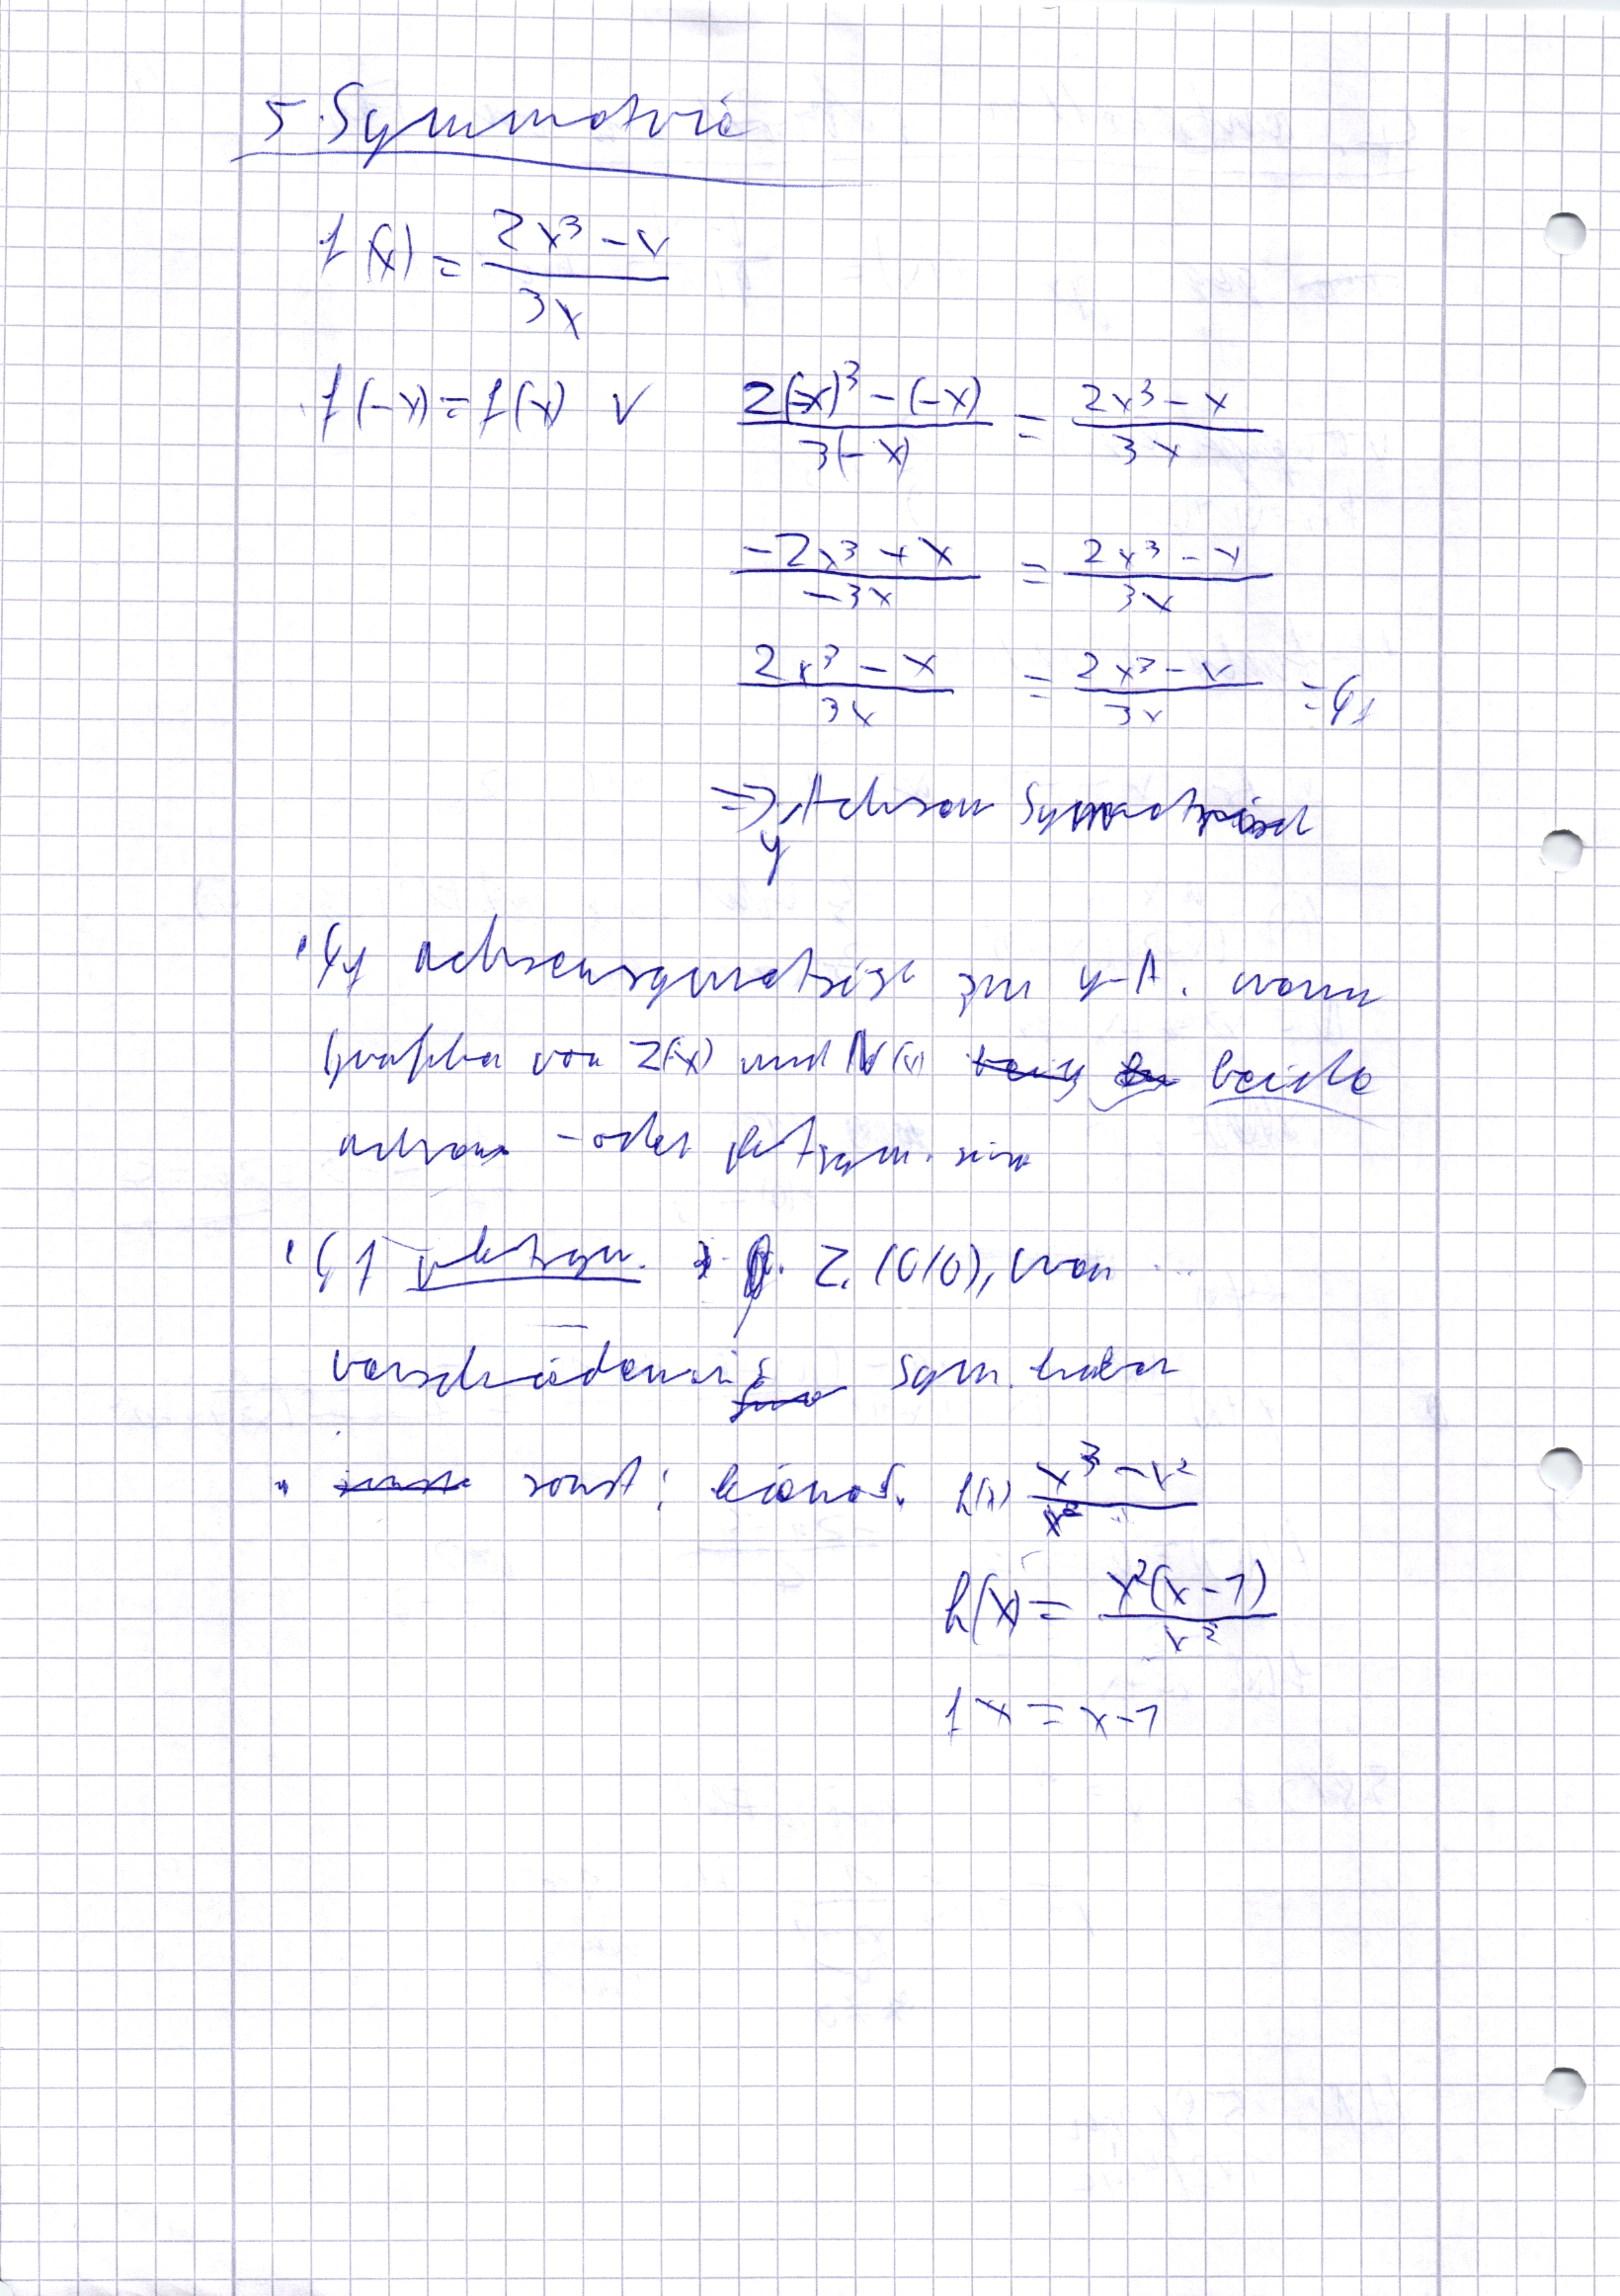 5. Symmetrie
f(x) = (2x³ - x) / (3x)
f(-x) = f(x) ✓ (2(-x)³ - (-x)) / (3(-x)) = (2x³ - x) / (3x)
(-2x³ + x) / (-3x) = (2x³ - x) / (3x)
(2x³ - x) / (3x) = (2x³ - x) / (3x) = Gf
=> y Achsen Symmetrisch
Gf zur y-A. wenn
Graphen von Z(x) und N(x) beide
achsen -oder pktsym. sind
Gf pktsym. z. (0/0), wenn ...
verschiedene Sym. haben
sonst: h(x) (x³ - x²) / x²
h(x) = x²(x-1) / x²
fx = x-1